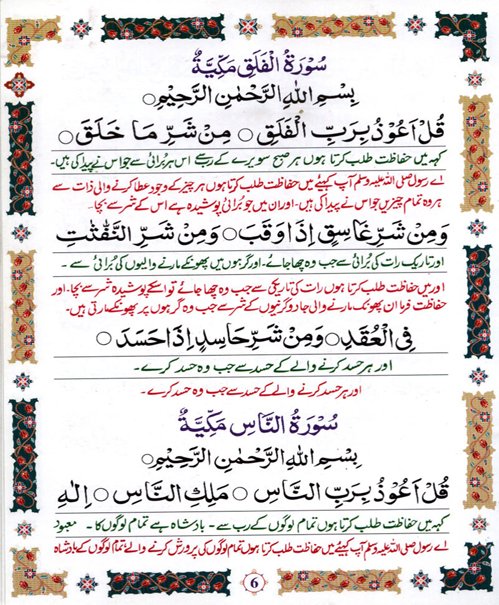 سُوْرَةُ الْفَلَقِ مَكِّيَّةٌ
بِسْمِ اللهِ الرَّحْمٰنِ الرَّحِيْمِ○
قُلْ اَعُوْذُ بِرَبِّ الْفَلَقِ○ مِنْ شَرِّ مَا خَلَقَ○
کہہ میں حفاظت طلب کرتا ہوں ہر صبح سویرے کے رب سے اس ہر بُرائی سے جو اس نے پیدا کی ہیں۔
اے رسول صلی اللہ علیہ وسلم آپ کہیئے میں حفاظت طلب کرتا ہوں ہر چیز کے وجود عطا کرنے والی ذات سے
ہر وہ تمام چیزیں جو اس نے پیدا کی ہیں۔ اور ان میں جو بُرائی پوشیدہ ہے اس کے شر سے بچا۔
وَمِنْ شَرِّ غَاسِقٍ اِذَا وَقَبَ○ وَمِنْ شَرِّ النَّفّٰثٰتِ
اور تاریک رات کی بُرائی سے جب وہ چھا جائے۔ اور گرہوں میں پھونکے مارنے والیوں کی بُرائی سے ۔
اور میں حفاظت طلب کرتا ہوں رات کی تاریکی سے جب وہ چھا جائے تو اسکے پوشیدہ شر سے بچا۔ اور
حفاظت فرما ان پھونک مارنے والی جادوگرنیوں کے شر سے جب وہ گرہوں پر پھونکے مارتی ہیں۔
فِى الْعُقَدِ○ وَمِنْ شَرِّ حَاسِدٍ اِذَا حَسَدَ○
اور ہر حسد کرنے والے کے حسد سے جب وہ حسد کرے۔
اور ہر حسد کرنے والے کے حسد سے جب وہ حسد کرے۔
سُوْرَةُ النَّاسِ مَكِّيَّةٌ
بِسْمِ اللهِ الرَّحْمٰنِ الرَّحِيْمِ○
قُلْ اَعُوْذُ بِرَبِّ النَّاسِ○ مَلِكِ النَّاسِ○ اِلٰهِ
کہہ میں حفاظت طلب کرتا ہوں تمام لوگوں کے رب سے ۔ بادشاہ ہے تمام لوگوں کا ۔ معبود
اے رسول صلی اللہ علیہ وسلم آپ کہیئے میں حفاظت طلب کرتا ہوں تمام لوگوں کی پرورش کرنے والے تمام لوگوں کے بادشاہ
6